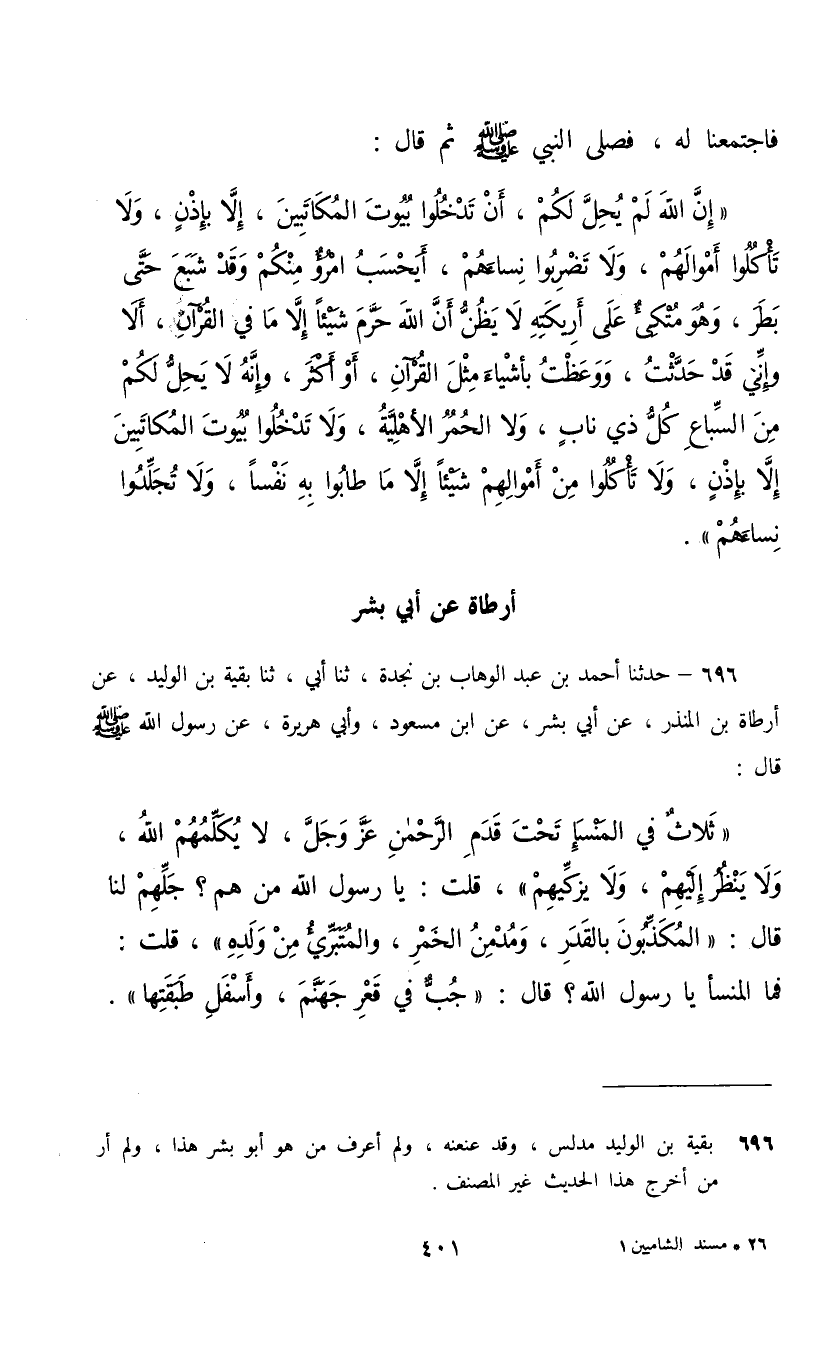 فاجتمعنا له ، فصلى النبي ﷺ ثم قال :
« إِنَّ اللهَ لَمْ يُحِلَّ لَكُمْ ، أَنْ تَدْخُلُوا بُيُوتَ المُكَاتَبِينَ ، إِلَّا بِإِذْنٍ ، وَلَا
تَأْكُلُوا أَمْوَالَهُمْ ، وَلَا تَضْرِبُوا نِساءَهُمْ ، أَيَحْسَبُ امْرُؤٌ مِنْكُمْ وَقَدْ شَبَعَ حَتَّى
بَطَرَ ، وَهُوَ مُتْكِئٌ عَلَى أَرِيكَتِهِ لَا يَظُنُّ أَنَّ اللهَ حَرَّمَ شَيْئاً إِلَّا مَا في القُرْآنِ ، أَلَا
وإِنِّي قَدْ حَدَّثْتُ ، وَوَعَظْتُ بأشْياءَ مِثْلَ القُرْآنِ ، أَوْ أَكْثَرَ ، وإِنَّهُ لَا يَحِلُّ لَكُمْ
مِنَ السِّباعِ كُلُّ ذي نابٍ ، وَلا الحُمُرُ الأهْلِيَّةُ ، وَلَا تَدْخُلُوا بُيُوتَ المُكاتَبِينَ
إِلَّا بِإِذْنٍ ، وَلَا تَأْكُلُوا مِنْ أَمْوالِهِمْ شَيْئاً إِلَّا مَا طابُوا بِهِ نَفْساً ، وَلَا تُجَلِّدُوا
نِساءَهُمْ » .
أرطاة عن أبي بشر
٦٩٦ – حدثنا أحمد بن عبد الوهاب بن نجدة ، ثنا أبي ، ثنا بقية بن الوليد ، عن
أرطاة بن المنذر ، عن أبي بشر ، عن ابن مسعود ، وأبي هريرة ، عن رسول الله ﷺ
قال :
« ثَلاثٌ في المَنْسَإِ تَحْتَ قَدَمِ الرَّحْمٰنِ عَزَّ وَجَلَّ ، لا يُكَلِّمُهُمْ اللهُ ،
وَلَا يَنْظُرُ إِلَيْهِمْ ، وَلَا يزكِّيهِمْ » ، قلت : يا رسول الله من هم ؟ جَلِّهِمْ لنا
قال : « المُكَذِّبُونَ بالقَدَرِ ، وَمُدْمِنُ الخَمْرِ ، والمُتَبَرِّيءُ مِنْ وَلَدِهِ » ، قلت :
فما المنسأ يا رسول الله ؟ قال : « جُبٌّ في قَعْرِ جَهَنَّمَ ، وأَسْفَلِ طَبَقَتِها » .
٦٩٦ بقية بن الوليد مدلس ، وقد عنعنه ، ولم أعرف من هو أبو بشر هذا ، ولم أر
من أخرج هذا الحديث غير المصنف .
٢٦ * مسند الشاميين ١
٤٠١